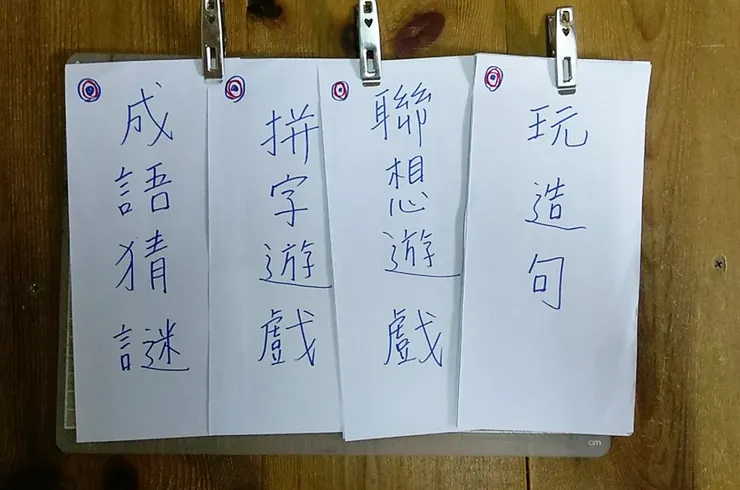 成語猜謎
拼字遊戲
聯想遊戲
玩造句
cm